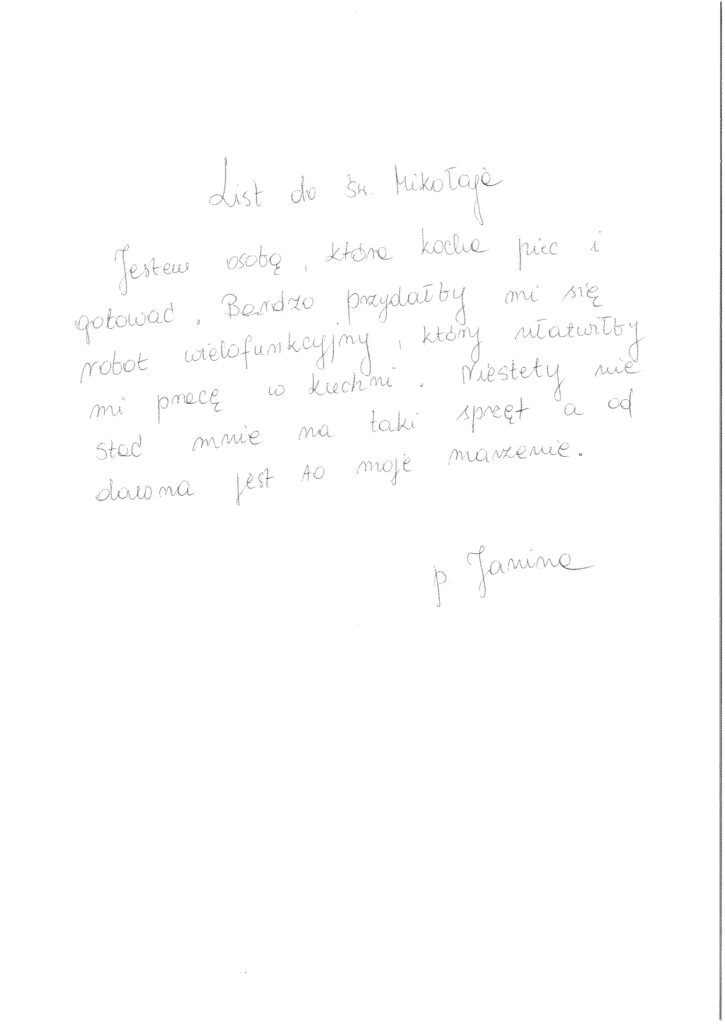 List do św. Mikołaja
Jestem osobą, która kocha piec i
gotować. Bardzo przydałby mi się
robot wielofunkcyjny, który ułatwiłby
mi pracę w kuchni. Niestety nie
stać mnie na taki sprzęt a od
dawna jest to moje marzenie.
p. Janina